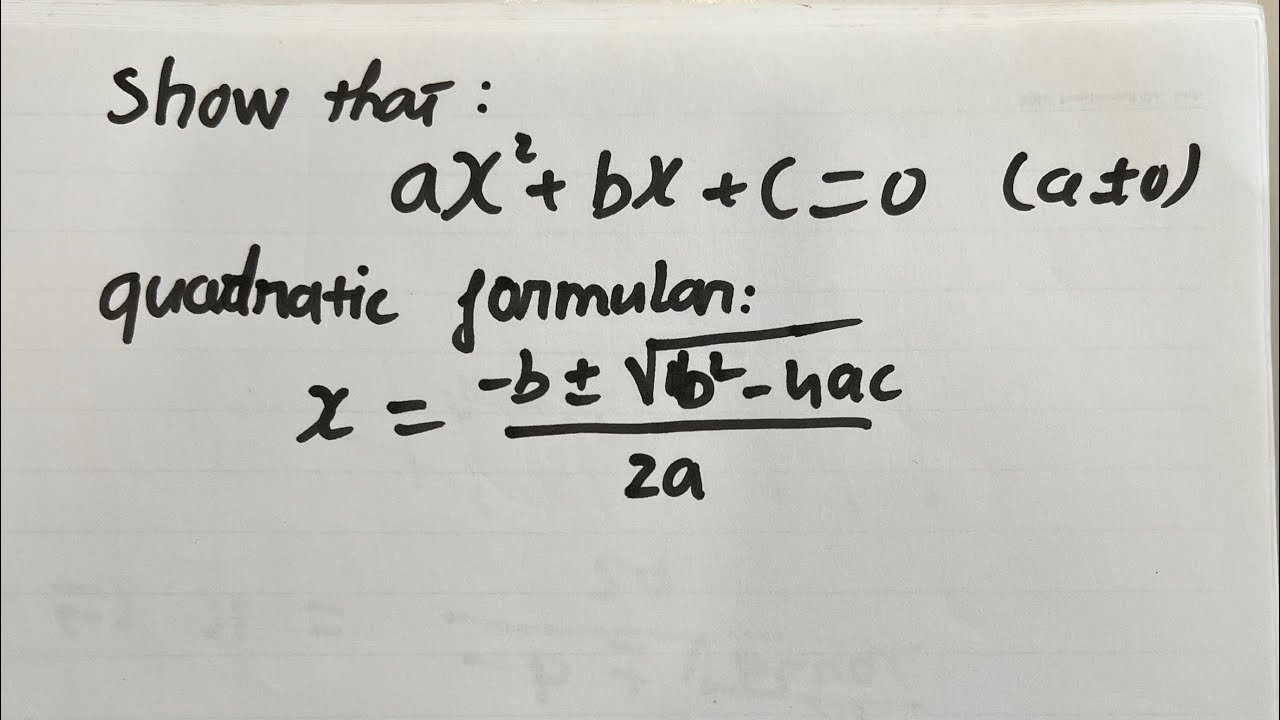 Show that:
ax² + bx + c = 0 (a ≠ 0)
quadratic formular:
x = -b ± √b² - 4ac
2a